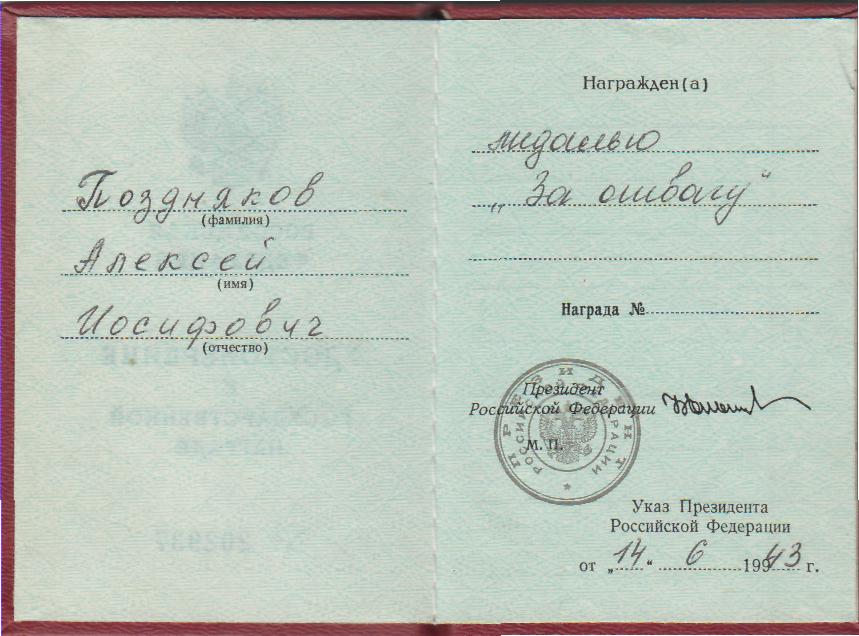 Поздняков
(фамилия)
Алексей
(имя)
Иосифович
(отчество)
Награжден(а)
медалью
„За отвагу“
Награда №
Президент
Российской Федерации
М. П.
ПРЕЗИДЕНТ
РОССИЙСКОЙ ФЕДЕРАЦИИ
Указ Президента
Российской Федерации
от „14“ 6 1993 г.